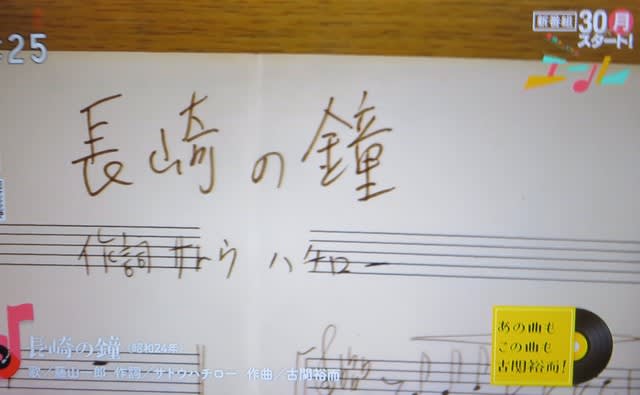 :25
新番組 30月
スタート!
エール
長崎の鐘
作詞 サトウ ハチロー
長崎の鐘 (昭和24年)
歌/藤山一郎 作詞/サトウハチロー 作曲/古関裕而
あの曲も
この曲も
古関裕而!